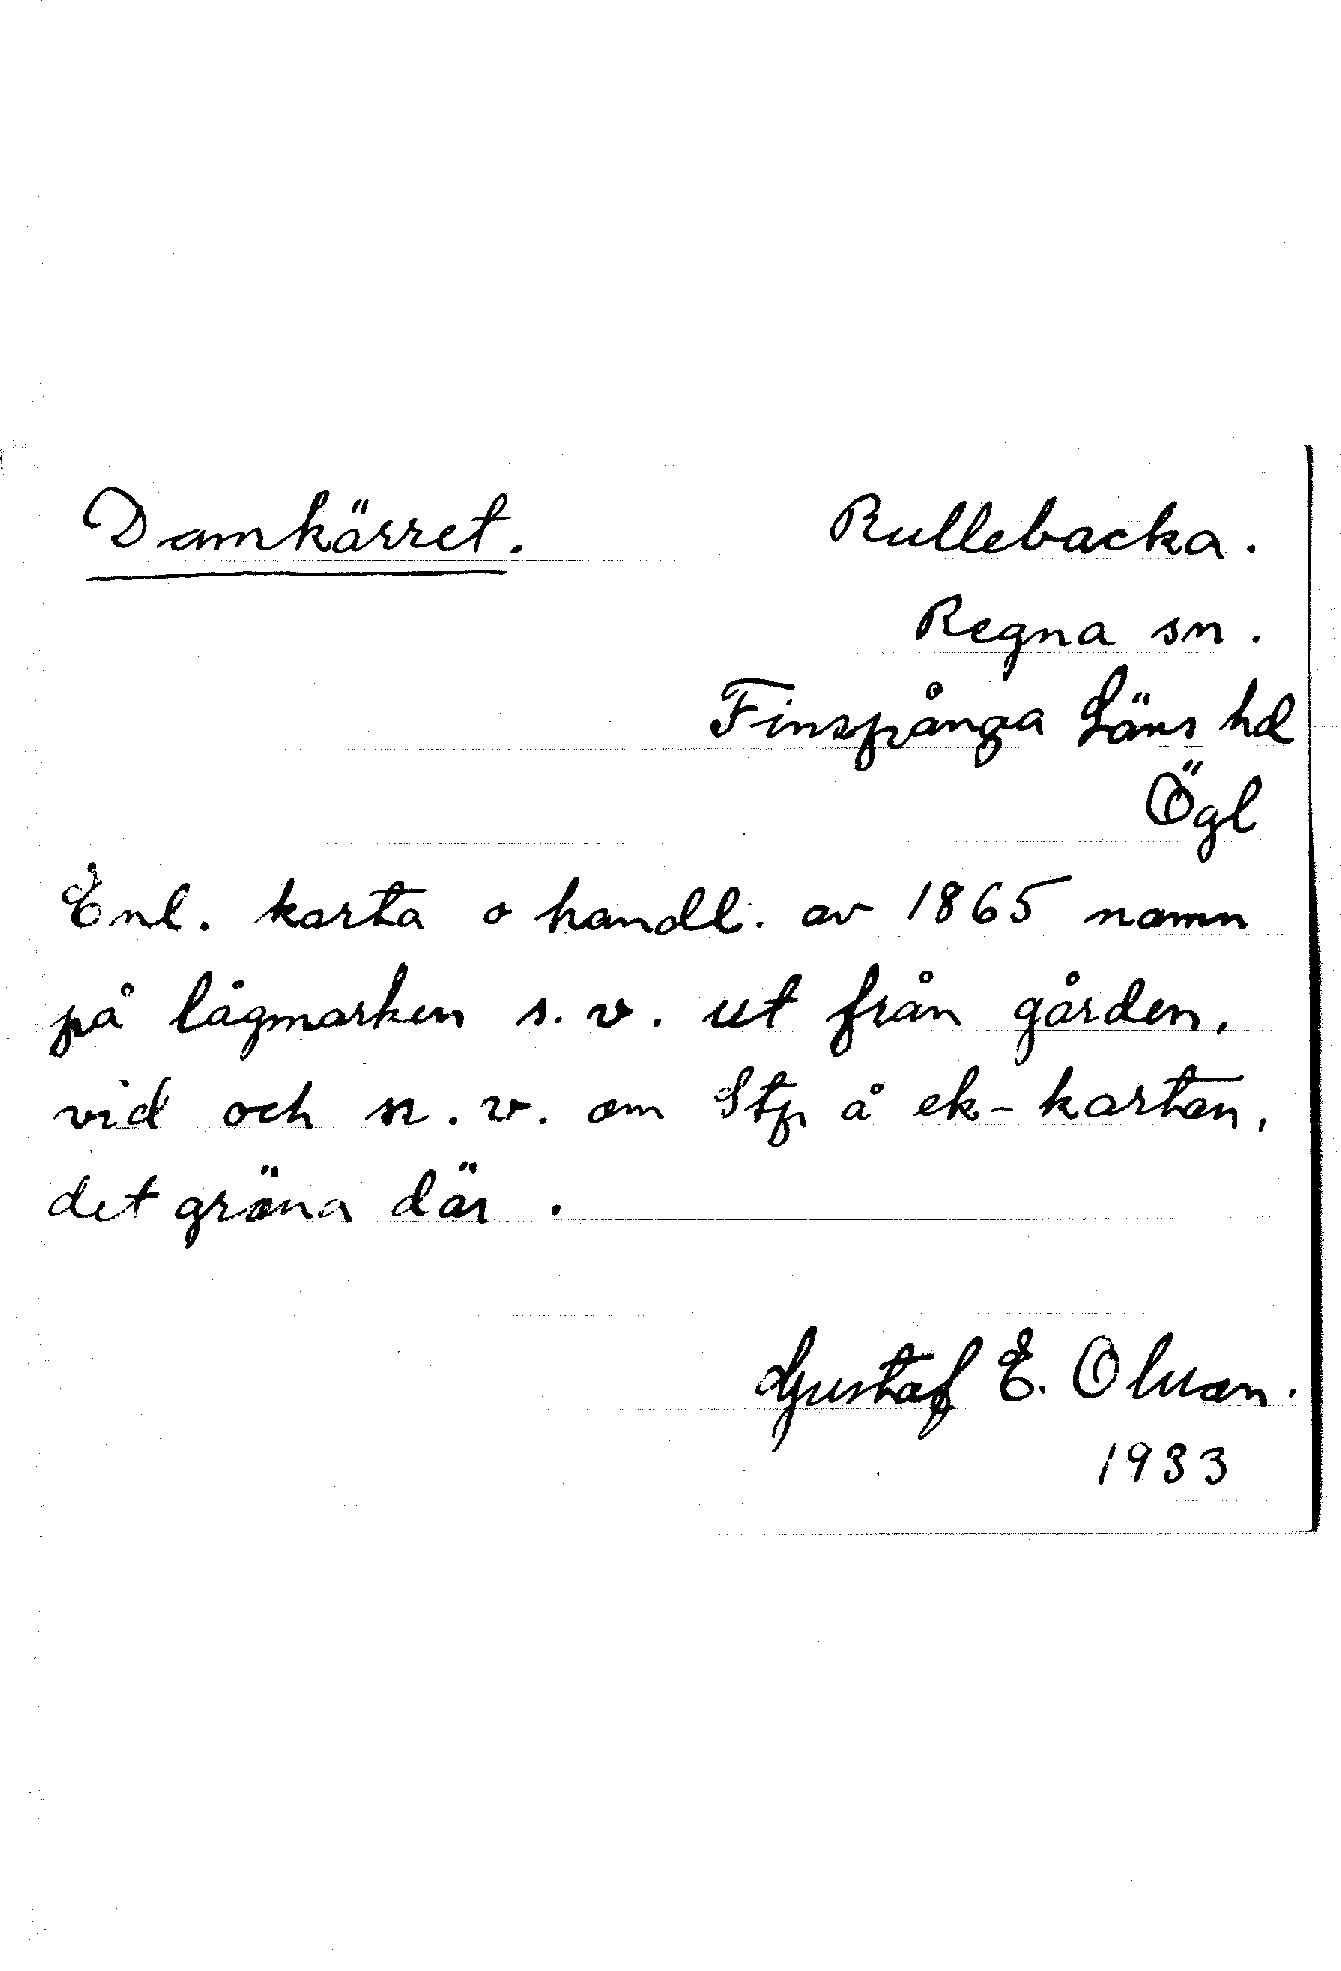 Damkärret. Rullebacka.
Regna sn.
Finspånga Läns hd
Ögl
Enl. karta o handl. av 1865 namn
på lågmarken s.v. ut från gården,
vid och n.v. om Stp å ek-kartan,
det gröna där.
Gustaf E. Olsson.
1933